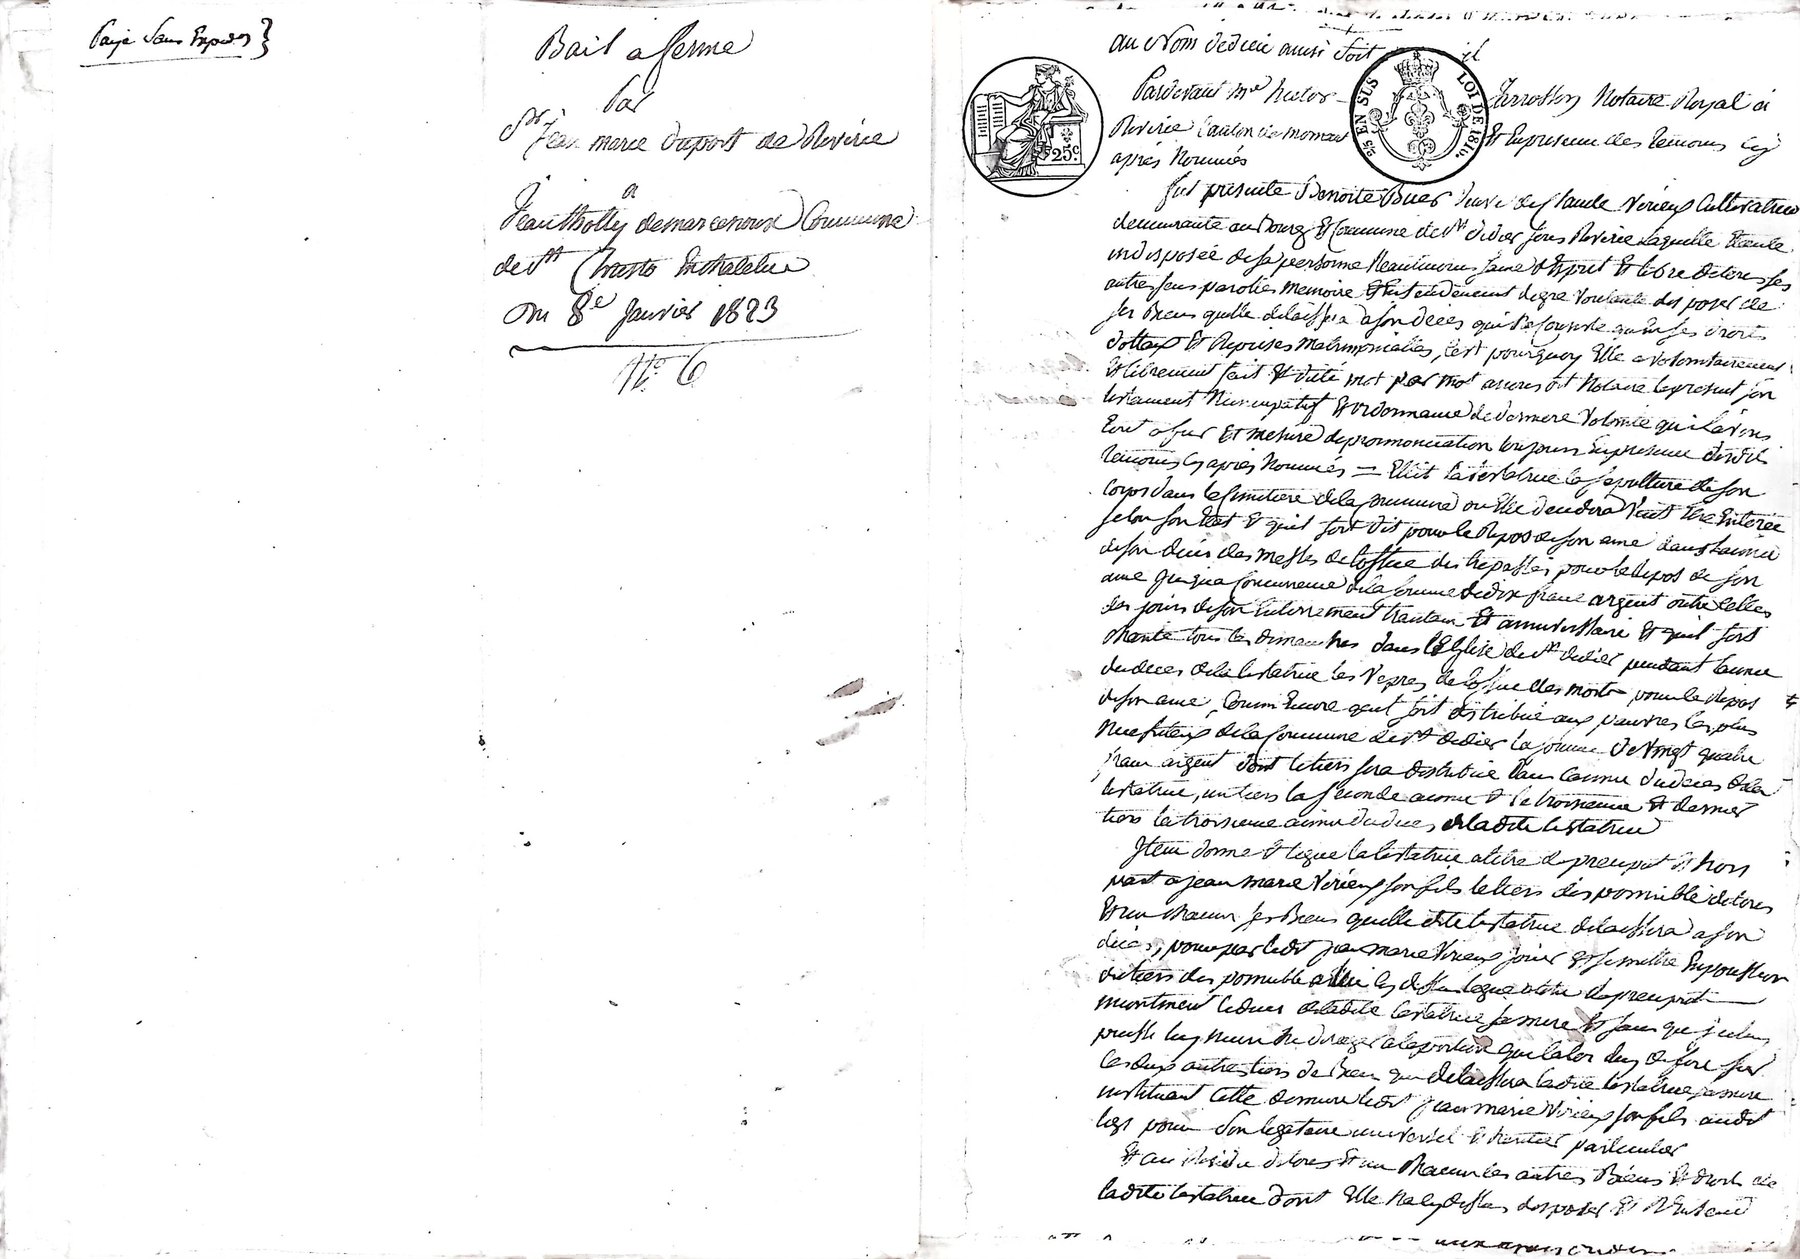 Paye Sans Expedon
Bail a ferme
Par
Sr Jean marie dupost de Rivirie
a
Jean tholly demarcenoux Commune
de St Christo Enchatelus
Du 8e Janvier 1823
No. 6
au Nom dedieu ainsi soit il
Pardevant Me hector Notaire Royal à
Rivirie Canton de mornant Et Enpresence des temoins Cy
après Nommés
25 EN SUS LOI DE 1816.
25c.
fut presente Benoite Buer veuve de Claude Virieux Cultivatrice
demeurante au Bourg Et Commune de St didier sous Rivirie Laquelle Etante
indisposée de sa personne Neantmoins saine d'Esprit Et libre de tous ses
autres sens paroles memoire Et Entendement degre voulante disposer de
ses Biens quelle delaissera a son deces qui ne Consiste qu'en ses droits
dottaux Et Reprises matrimonialles, C'est pourquoy Elle a volontairement
Et librement fait Et dicté mot par mot anous dit Notaire lepresent son
testament Nuncupatif Et ordonnance de derniere volontée
tout a fur Et mesure deprononciation toujours Enpresence desdits
temoins Cy après Nommés = Elit la testatrice la sepulture de son
Corps dans le Cimetiere de la Commune ou Elle decedera veut Etre Enterée
selon son Etat Et quil soit dit pour le Repos de son ame dans l'année
de son deces des messes de l'office des trepassés pour le Repos de son
ame jusqua Concurrence de la somme de dix francs argent outre Celles
des jours de son Enterrement trantain Et anniversaire Et quil soit
chanté tous les dimanches dans l'Eglise de St didier pendant l'année
du deces de la testatrice les Vepres de l'office des morts pour le Repos
de son ame, Comm Encore quil soit distribué aux pauvres les plus
Necessiteux de la Commune de St didier la somme de Vingt quatre
francs argent dont le tiers sera distribué dans l'année du deces de la
testatrice, un tiers la seconde année Et le troisieme Et dernier
tiers la troisieme année du deces de ladite testatrice
Item donne Et legue la testatrice a titre de preciput Et hors
part a Jean marie Virieux son fils le tiers disponnible de tous
Et un chacun ses Biens quelle dite testatrice delaissera a son
deces, pour par ledit Jean marie Virieux jouir Et se mettre Enpossession
du tiers disponnible a luy Cy dessus legué a titre de preciput
incontinent le deces de ladite testatrice sa mere Et sans que
puisse luy Nuire a la portion sur
les deux autres tiers des Biens que delaissera ladite testatrice sa mere
instituant Cette derniere ledit Jean marie Virieux son fils audit
legs pour son legataire universel Et heritier particulier
Et au Residu de tous Et un chacun les autres Biens Et droits de
ladite testatrice dont Elle Na Cy dessus disposé